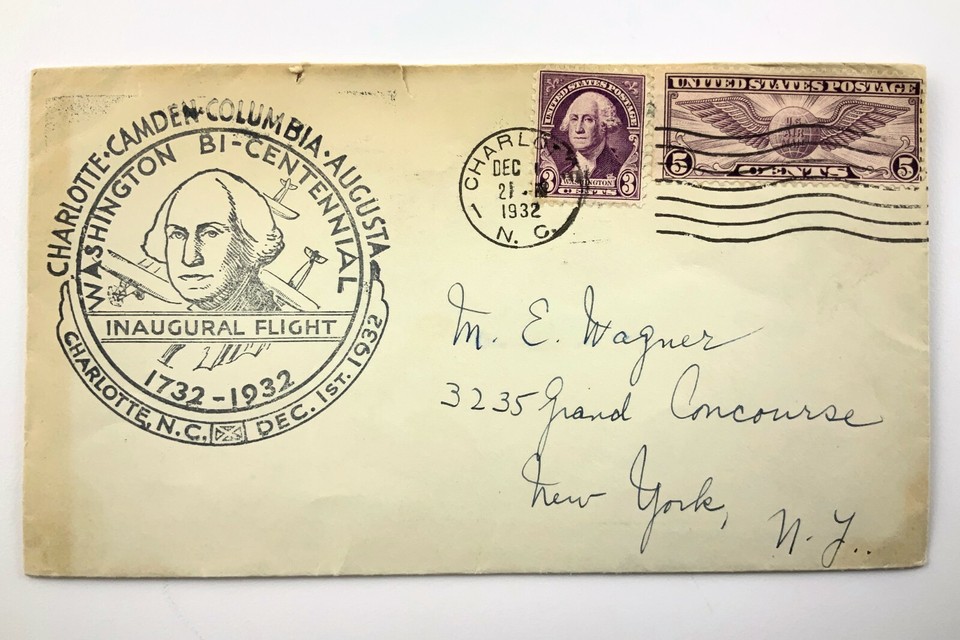 CHARLOTTE·CAMDEN·COLUMBIA·AUGUSTA
WASHINGTON BI-CENTENNIAL
INAUGURAL FLIGHT
1732-1932
CHARLOTTE, N.C. DEC. 1ST. 1932
CHARLO
DEC
21
1932
N. C.
1
UNITED STATES POSTAGE
WASHINGTON
3 CENTS 3
UNITED STATES POSTAGE
U.S.
5 CENTS 5
M. E. Wagner
3235 Grand Concourse
New York,
N. Y..